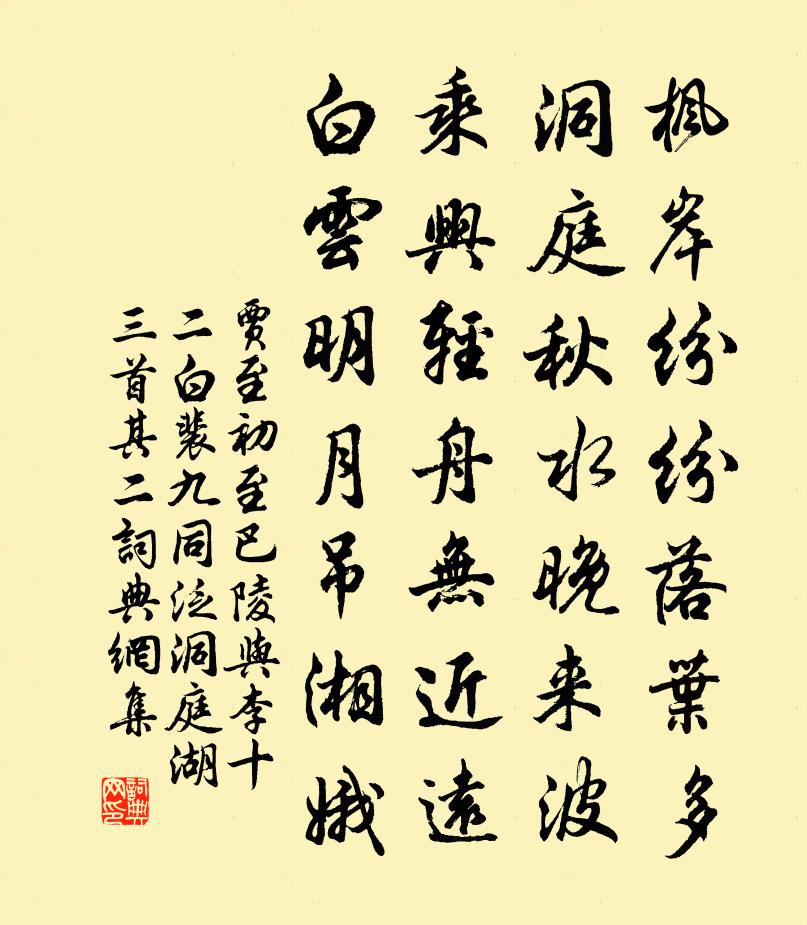 枫岸纷纷落葉多
洞庭秋水晚来波
乘興輕舟無近遠
白雲明月吊湘娥
賈至初至巴陵與李十
二白裴九同泛洞庭湖
三首其二詞典網集
詞典
网印